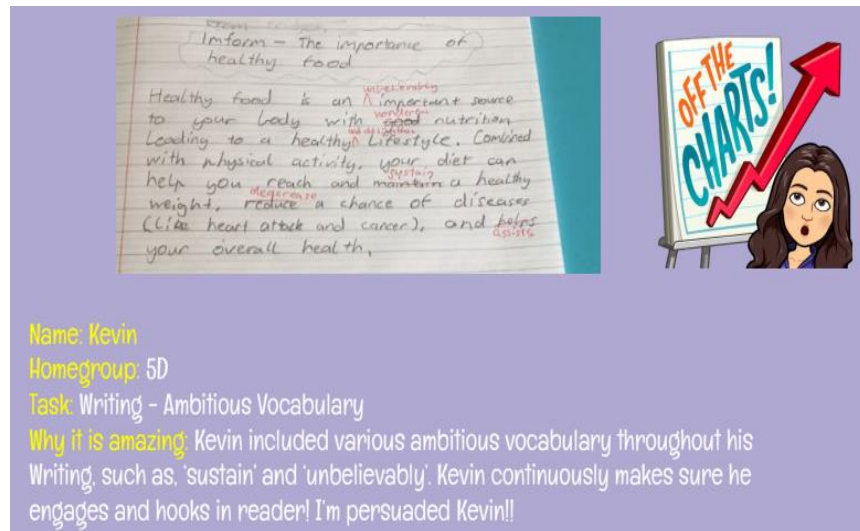 Imform - The importance of
healthy food
unbelievably
Healthy food is an ^ important source
wonderful
to your body with good nutrition
Leading to a healthy ^ Lifestyle. Combined
with physical activity, your diet can
sustain
help you reach and maintain a healthy
degcrease
weight, reduce a chance of diseases
(Like heart attack and cancer), and helps
assists
your overall health.
OFF THE
CHARTS!
Name: Kevin
Homegroup: 5D
Task: Writing - Ambitious Vocabulary
Why it is amazing: Kevin included various ambitious vocabulary throughout his
Writing, such as, 'sustain' and 'unbelievably'. Kevin continuously makes sure he
engages and hooks in reader! I'm persuaded Kevin!!